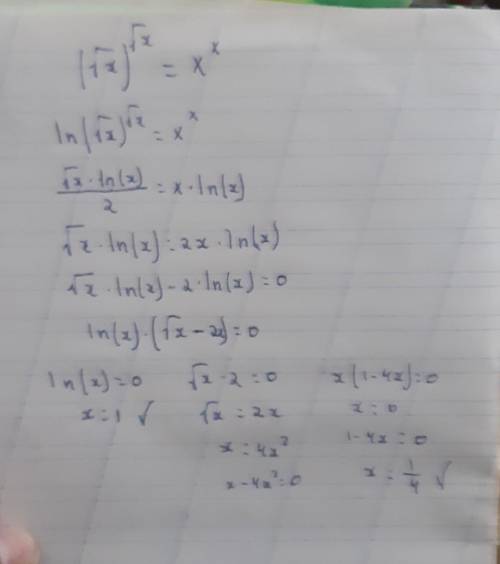 (√x)^√x = x^x
ln(√x)^√x = x^x
√x · ln(x) / 2 = x · ln(x)
√x · ln(x) = 2x · ln(x)
√x · ln(x) - 2 · ln(x) = 0
ln(x) · (√x - 2x) = 0
ln(x) = 0
x = 1 ✓
√x - 2 = 0
√x = 2x
x = 4x²
x - 4x² = 0
x(1 - 4x) = 0
x = 0
1 - 4x = 0
x = 1/4 ✓